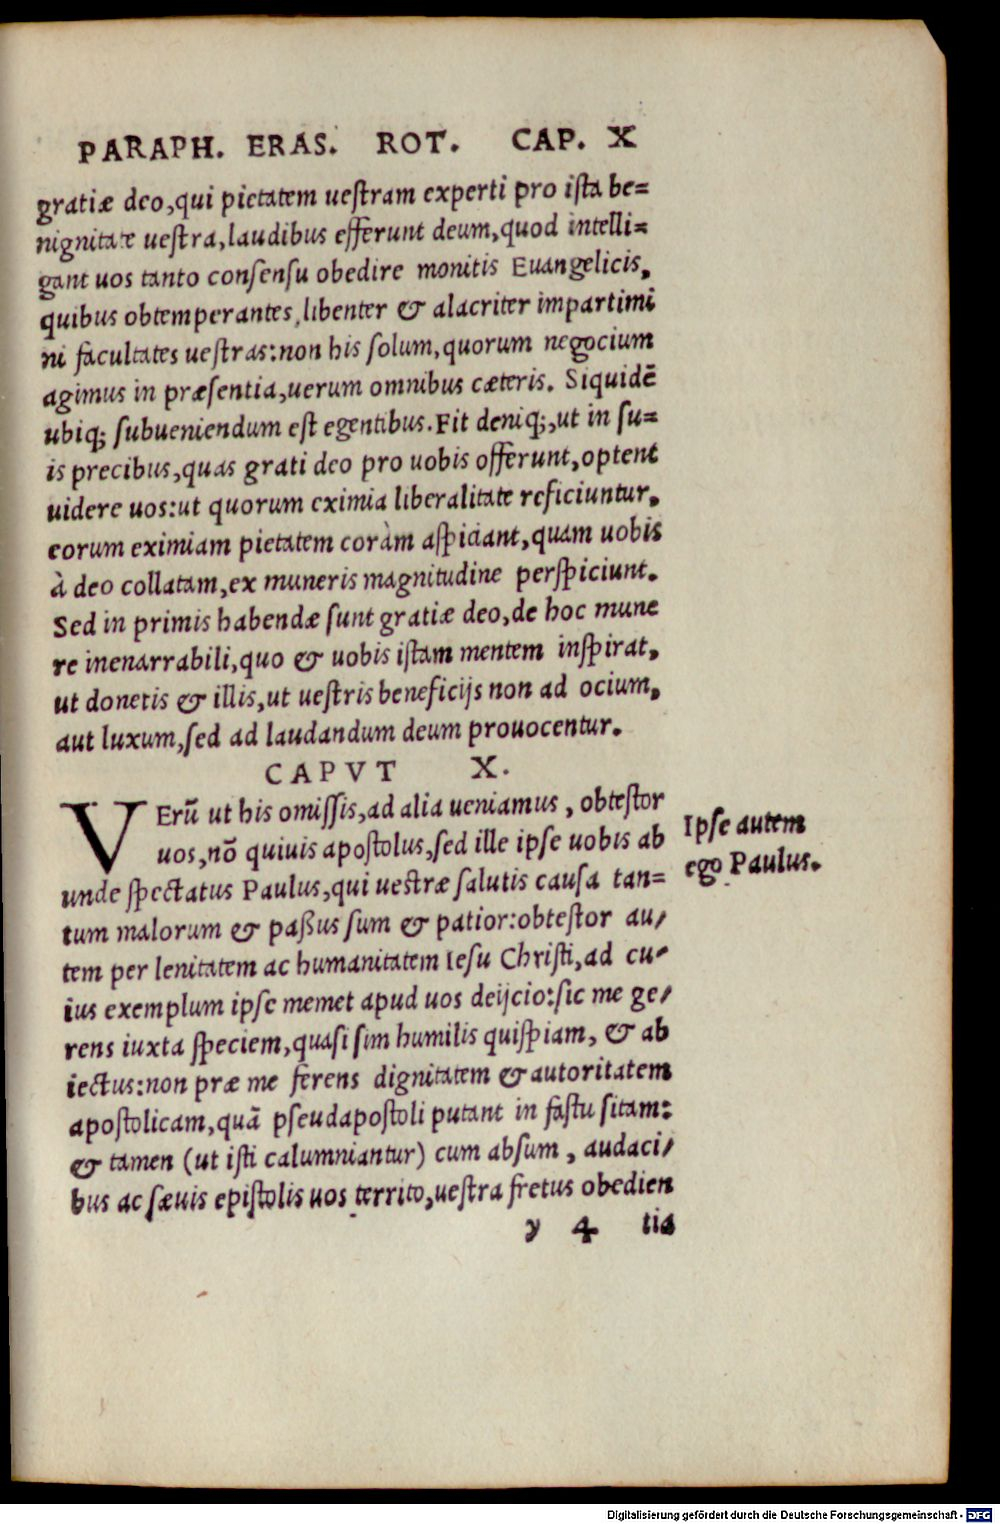 PARAPH. ERAS. ROT. CAP. X
gratiæ deo,qui pietatem ueſtram experti pro iſta be=
nignitate ueſtra,laudibus efferunt deum,quod intelli=
gant uos tanto conſenſu obedire monitis Euangelicis,
quibus obtemperantes,libenter & alacriter impartimi
ni facultates ueſtras:non his ſolum,quorum negocium
agimus in præſentia,uerum omnibus cæteris. Siquidē
ubiq; ſubueniendum eſt egentibus.Fit deniq;,ut in ſu=
is precibus,quas grati deo pro uobis offerunt,optent
uidere uos:ut quorum eximia liberalitate reficiuntur,
eorum eximiam pietatem coràm aſpiciant,quam uobis
à deo collatam,ex muneris magnitudine perſpiciunt.
Sed in primis habendæ ſunt gratiæ deo,de hoc mune
re inenarrabili,quo & uobis iſtam mentem inſpirat,
ut donetis & illis,ut ueſtris beneficijs non ad ocium,
aut luxum,ſed ad laudandum deum prouocentur.
CAPVT X.
VErū ut his omiſſis,ad alia ueniamus, obteſtor
uos,nō quiuis apoſtolus,ſed ille ipſe uobis ab
unde ſpectatus Paulus,qui ueſtræ ſalutis cauſa tan=
tum malorum & paßus ſum & patior:obteſtor au/
tem per lenitatem ac humanitatem Ieſu Chriſti,ad cu/
ius exemplum ipſe memet apud uos deijcio:ſic me ge/
rens iuxta ſpeciem,quaſi ſim humilis quiſpiam, & ab
iectus:non præ me ferens dignitatem & autoritatem
apoſtolicam,quā pſeudapoſtoli putant in faſtu ſitam:
& tamen (ut iſti calumniantur) cum abſum, audaci/
bus ac ſæuis epiſtolis uos territo,ueſtra fretus obedien
y 4 tia
Ipſe autem
ego Paulus.
Digitalisierung gefördert durch die Deutsche Forschungsgemeinschaft - DFG